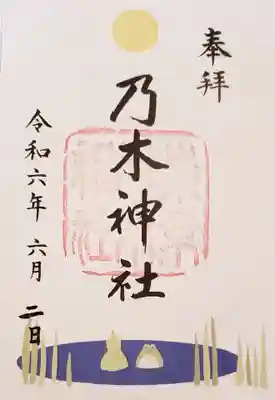 奉拝
乃木神社
令和六年 六月 二日